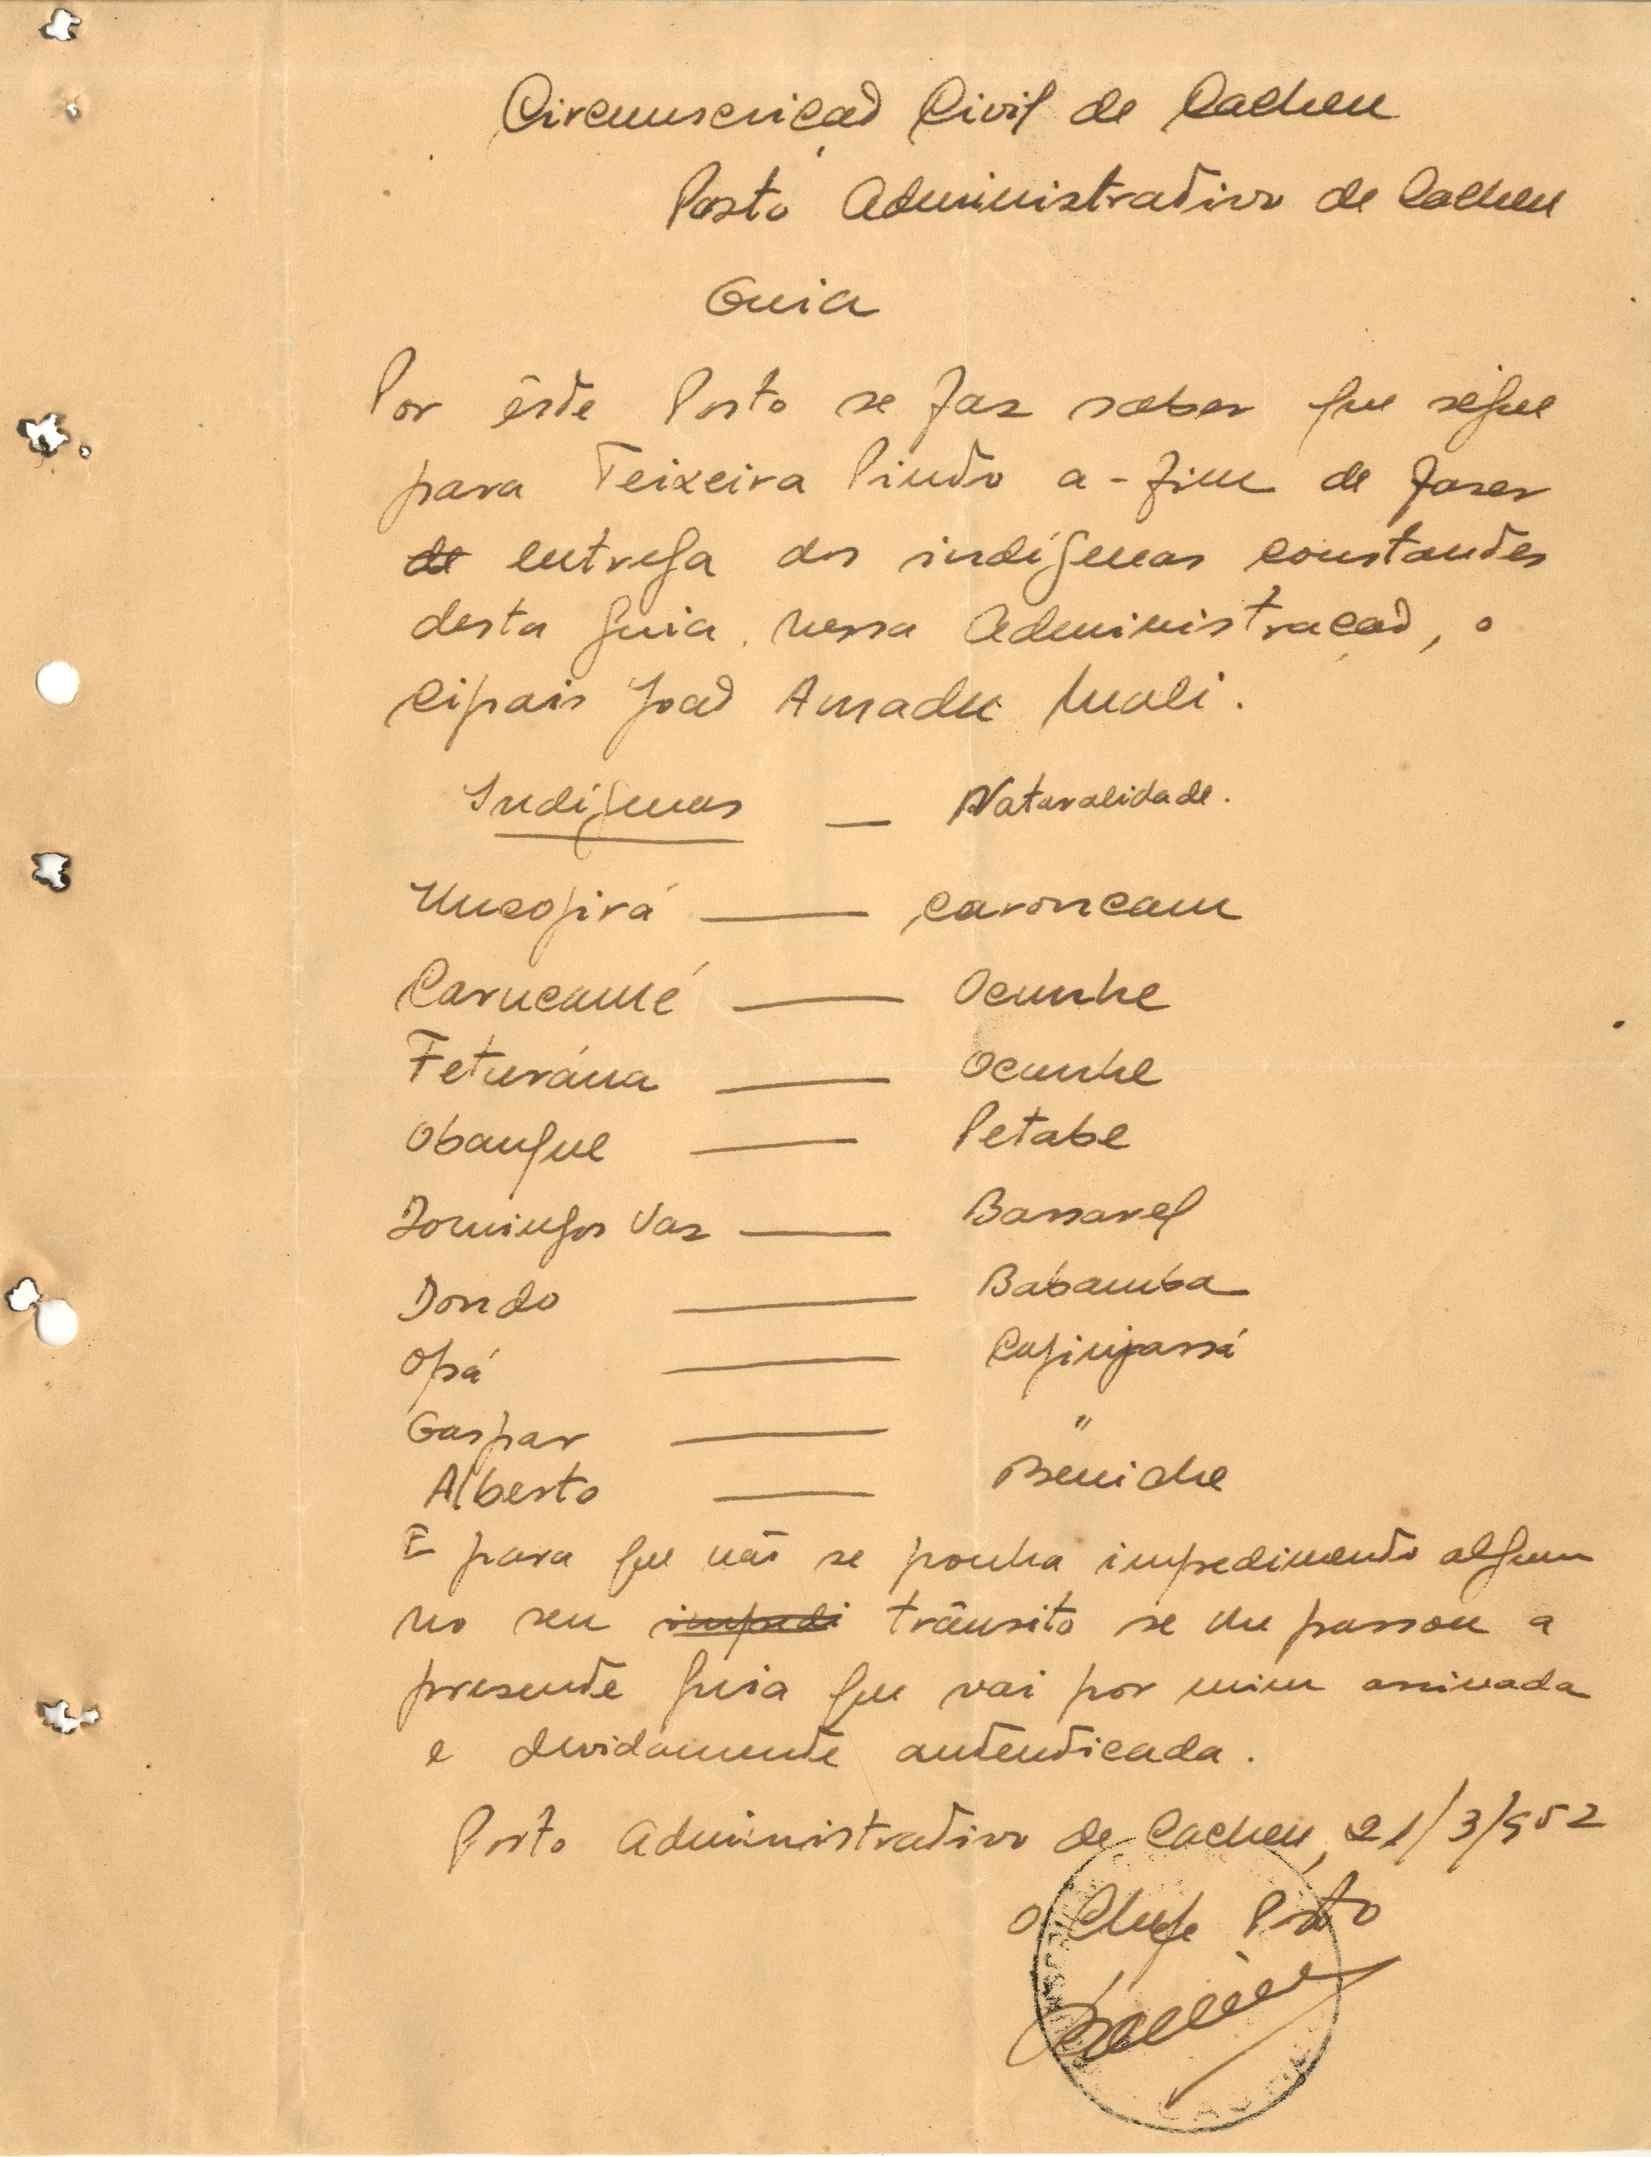 Circunscrição Civil de Cacheu
Posto Administrativo de Cacheu
Guia
Por êste Posto se faz saber queségue
para Teixeira Pinto a-fim de fazer
de entrega dos indígenas constantes
desta guia, nessa Administração, o
cipais João Amadu Mali.
Indígenas — Naturalidade.
— caroncam
Carucamé — Ocunhe
Feturána — Ocunhe
Obangue — Petabe
Domingos Vaz — Bassarel
Dondo — Babamba
Opá —
Gaspar — "
Alberto — Beniche
E para que não se ponha impedimento algum
no seu impedi trânsito se lhe passou a
presente guia que vai por mim assinada
e devidamente autenticada.
Posto Administrativo de Cacheu, 21/3/952
O Chefe Posto